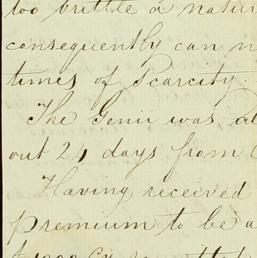 too brittle a natur
consequently can n
times of scarcity.
The Genii was al
out 24 days from
Having received
premium to be a